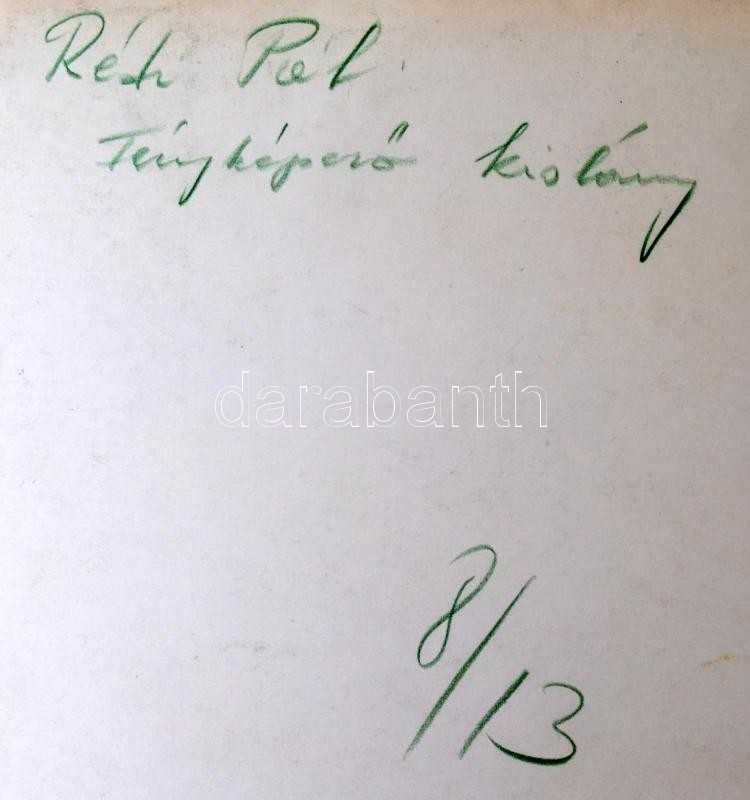 Réti Pál.
Fényképező kislány
darabanth
8/13